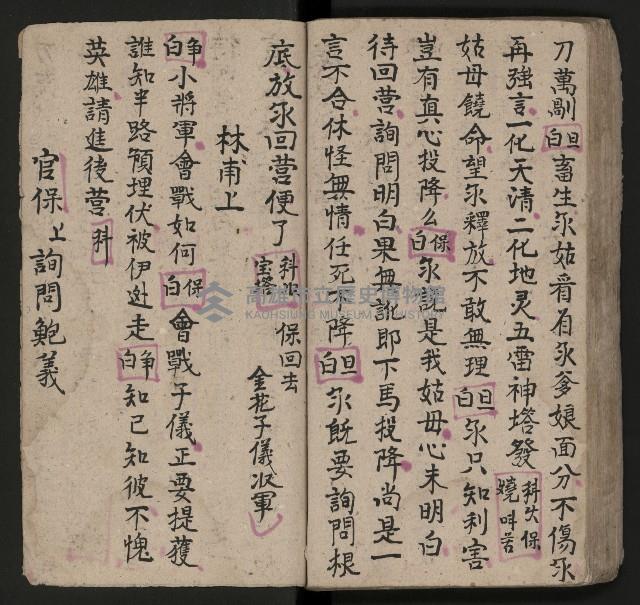 刀萬剮旦白畜生尔姑看有尔爹娘面分不傷尔
再強言一化天清二化地灵五雷神塔發科火保燒叫苦
姑母饒命望尔釋放不敢無理旦白尔只知利害
豈有真心投降么保白尔說是我姑母心未明白
待回营詢問明白果無說即下馬投降尚是一
言不合休怪無情任死不降旦白尔既要詢問根
底放尔回营便了科收宝塔保回去金花子儀收軍
林甫上
争白小將軍會戰如何保白會戰子儀正要提獲
誰知半路預埋伏被伊逃走争白知已知彼不愧
英雄請進後营科
官保上詢問鮑義
高雄市立歷史博物館
KAOHSIUNG MUSEUM OF HISTORY